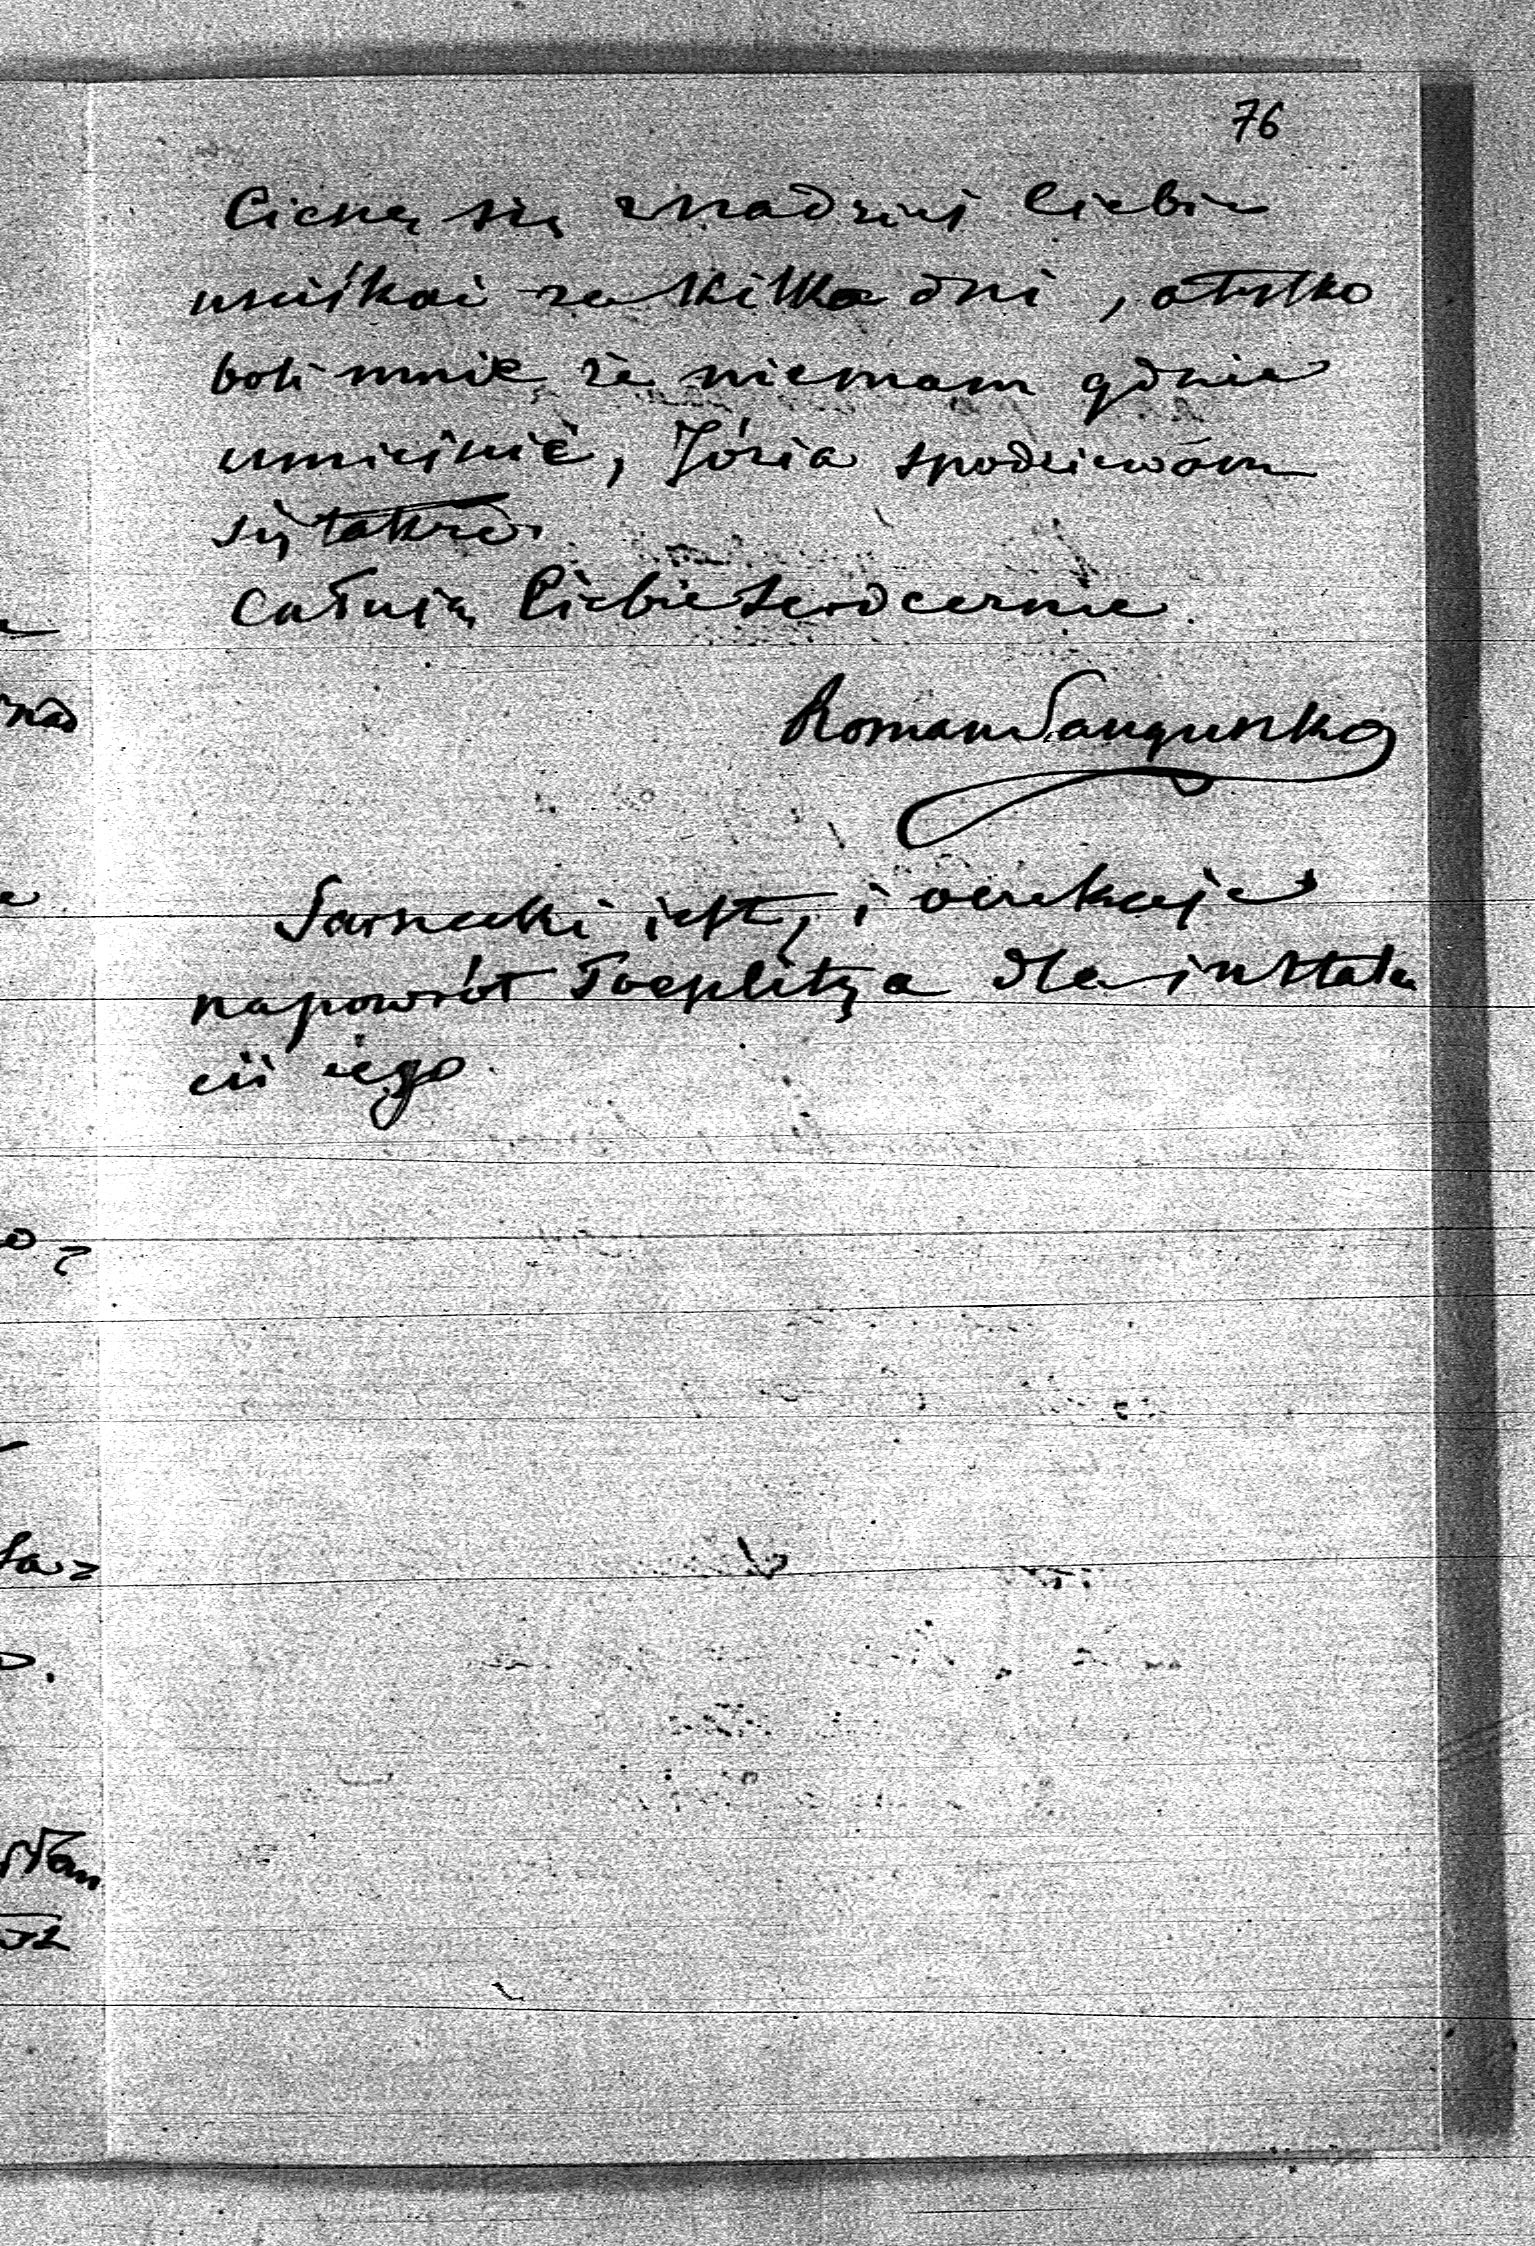 76
Cieszę się z nadzieij Ciebie
uściskai za kilka dni, a tylko
boli mnie że niemam gdzie
umieścić, Józia spodziewam
się także.
Całuię Ciebie serdecznie.
Roman Sanguszko
Sarnecki iest, i oczekuje
napowrót Toeplitza dla instala
cii iego